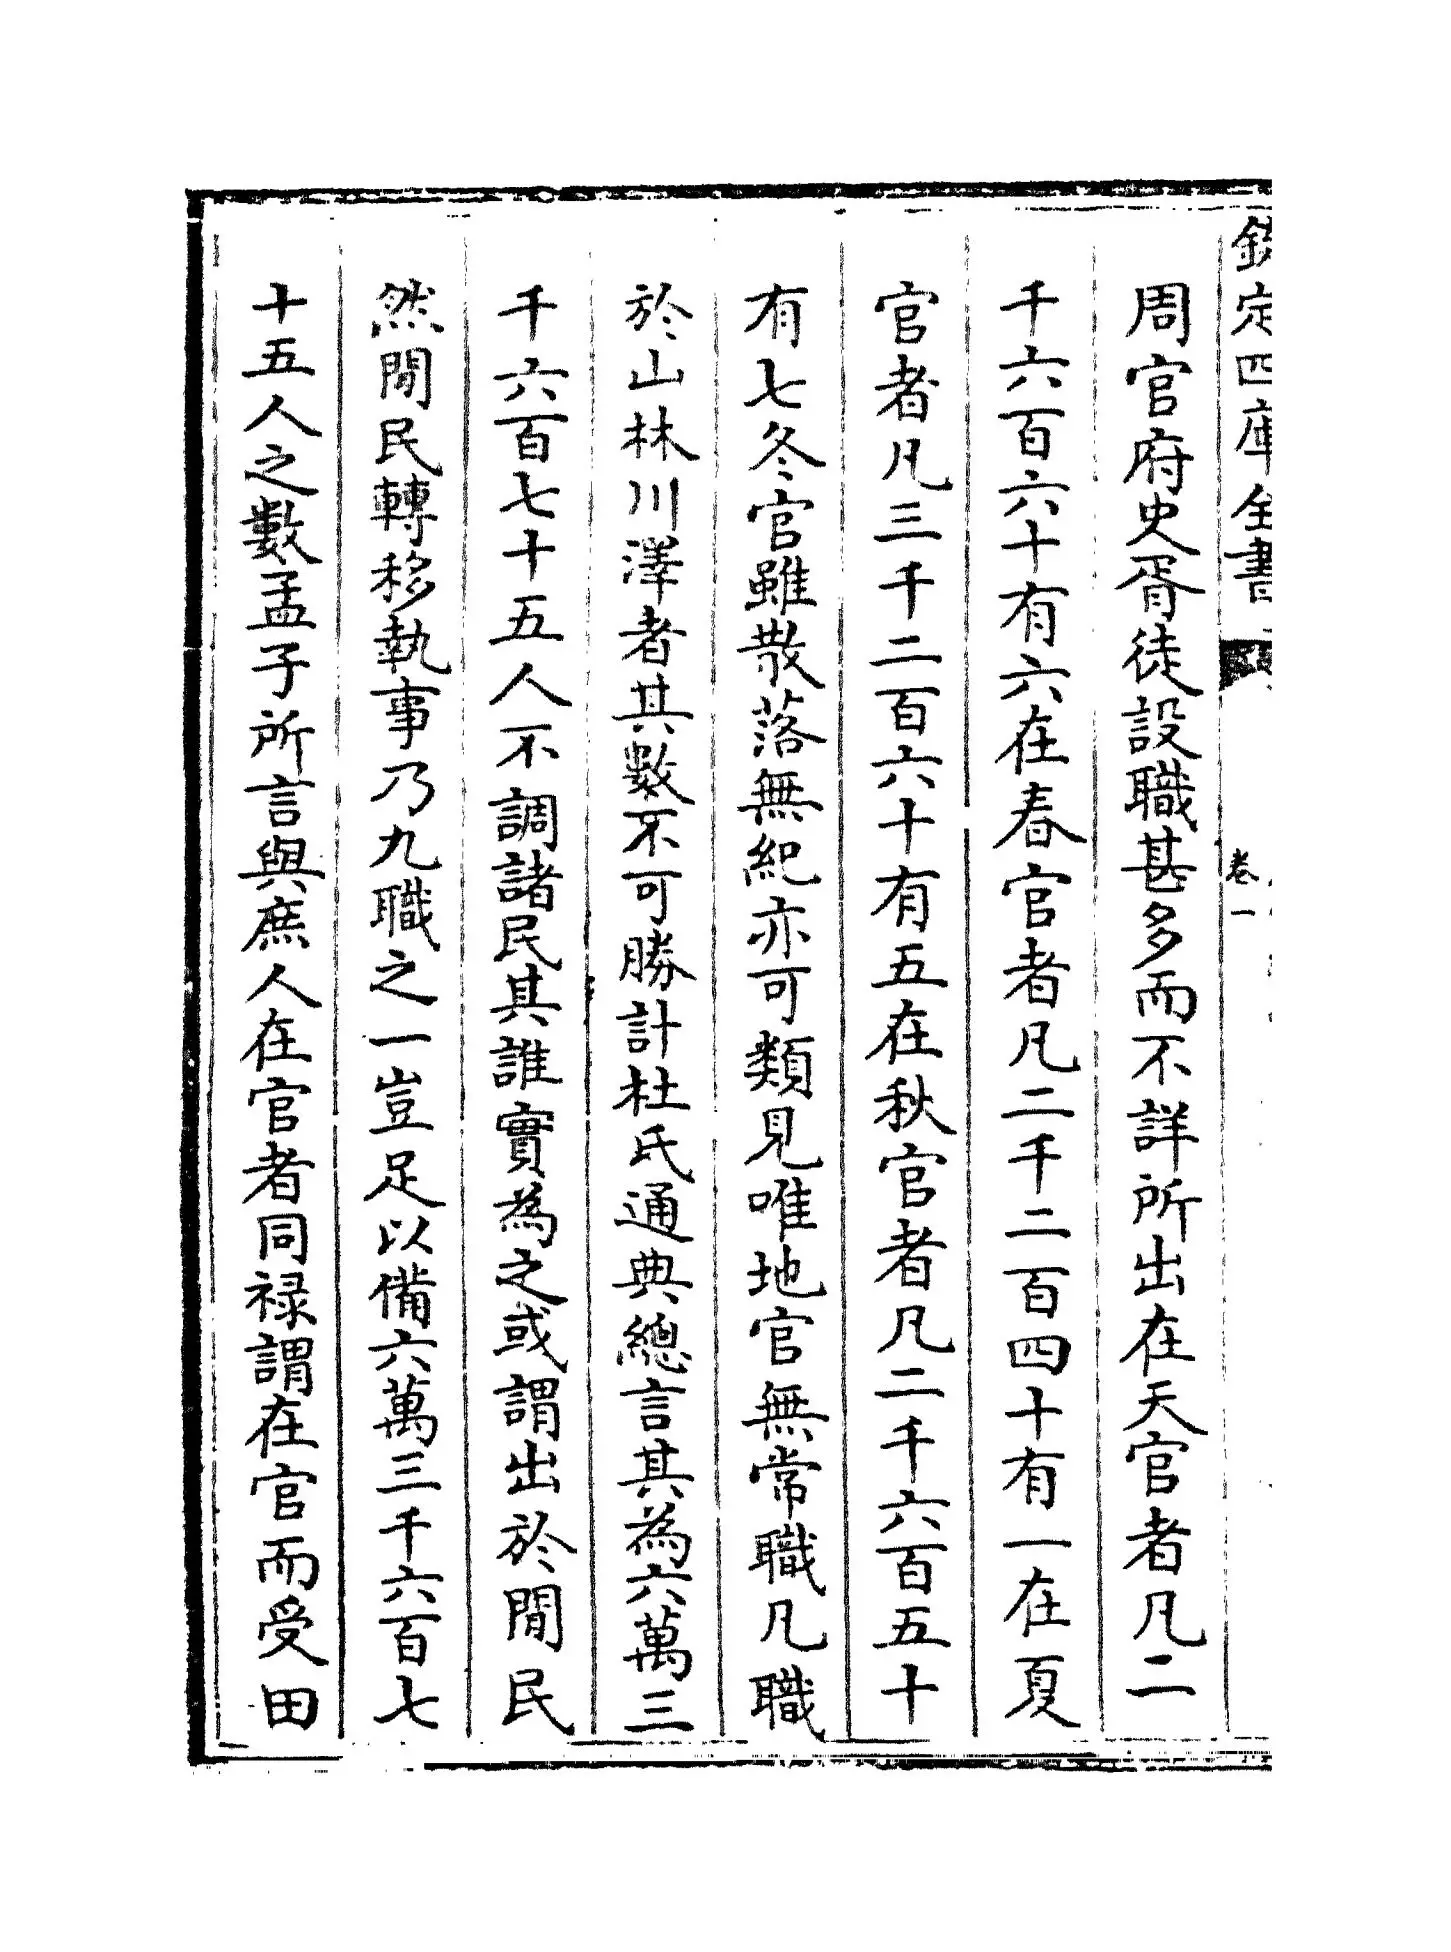 欽定四庫全書
卷一
周官府史胥徒設職甚多而不詳所出在天官者凡二
千六百六十有六在春官者凡二千二百四十有一在夏
官者凡三千二百六十有五在秋官者凡二千六百五十
有七冬官雖散落無紀亦可類見唯地官無常職凡職
於山林川澤者其數不可勝計杜氏通典總言其為六萬三
千六百七十五人不調諸民其誰實為之或謂出於閒民
然閒民轉移執事乃九職之一豈足以備六萬三千六百七
十五人之數孟子所言與庶人在官者同禄謂在官而受田